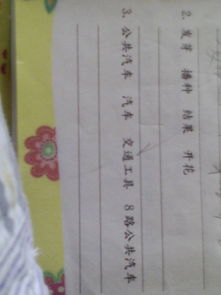 2. 发芽 播种 结果 开花
3. 公共汽车 汽车 交通工具 8路公共汽车